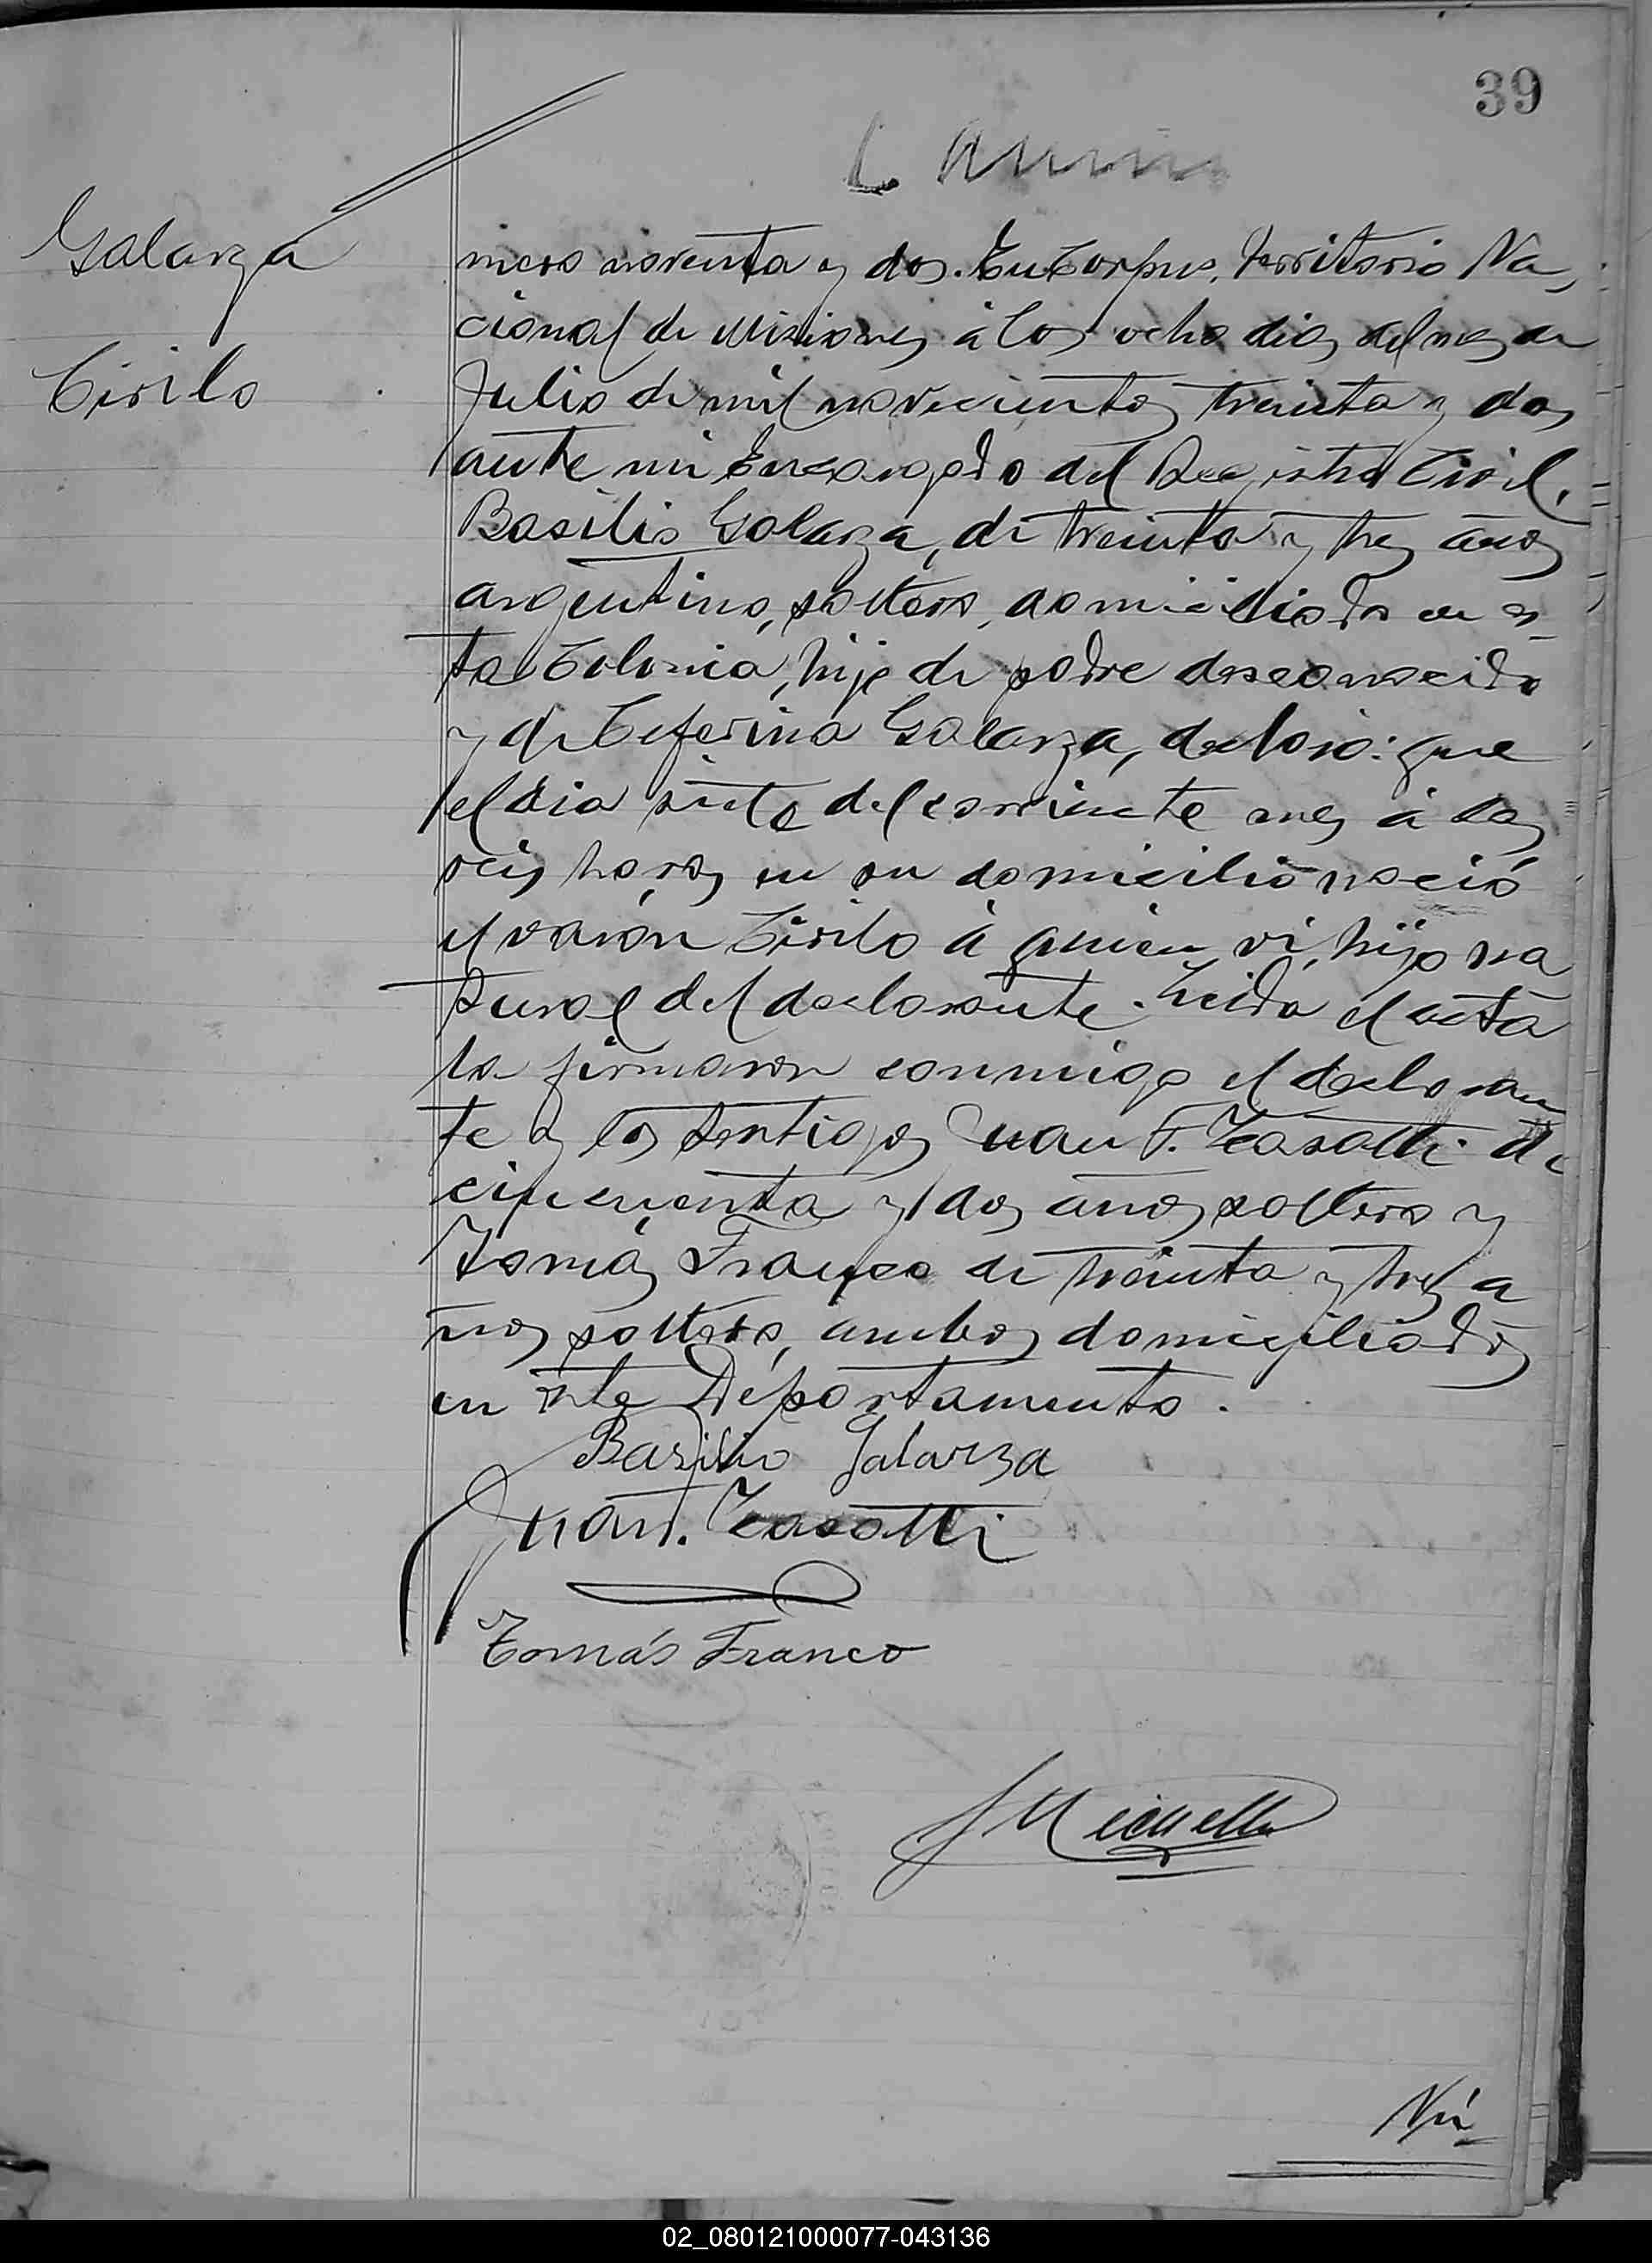 39
Galarza
Cirilo
mero noventa y dos. En Corpus, Territorio Na
cional de Misiones á los ocho dias del mes de
Julio de mil novecientos treinta y dos
ante mi Encargado del Registro Civil,
Basilio Galarza, de treinta y tres años
argentino, soltero, domiciliado en es
ta Colonia, hijo de padre desconocido
y de Ceferina Galarza, declaró: que
el dia siete del corriente mes á las
seis horas en su domicilio nació
el varón Cirilo á quien vi, hijo na
tural del declarante. Leida el acta
la firmaron conmigo el declaran
te y los testigos Juan F. Casatti de
cincuenta y dos años soltero y
Tomás Franco de treinta y tres a
ños soltero, ambos domiciliados
en este Departamento.
Basilio Galarza
Juan F. Casatti
Tomás Franco
Nú
02_080121000077-043136